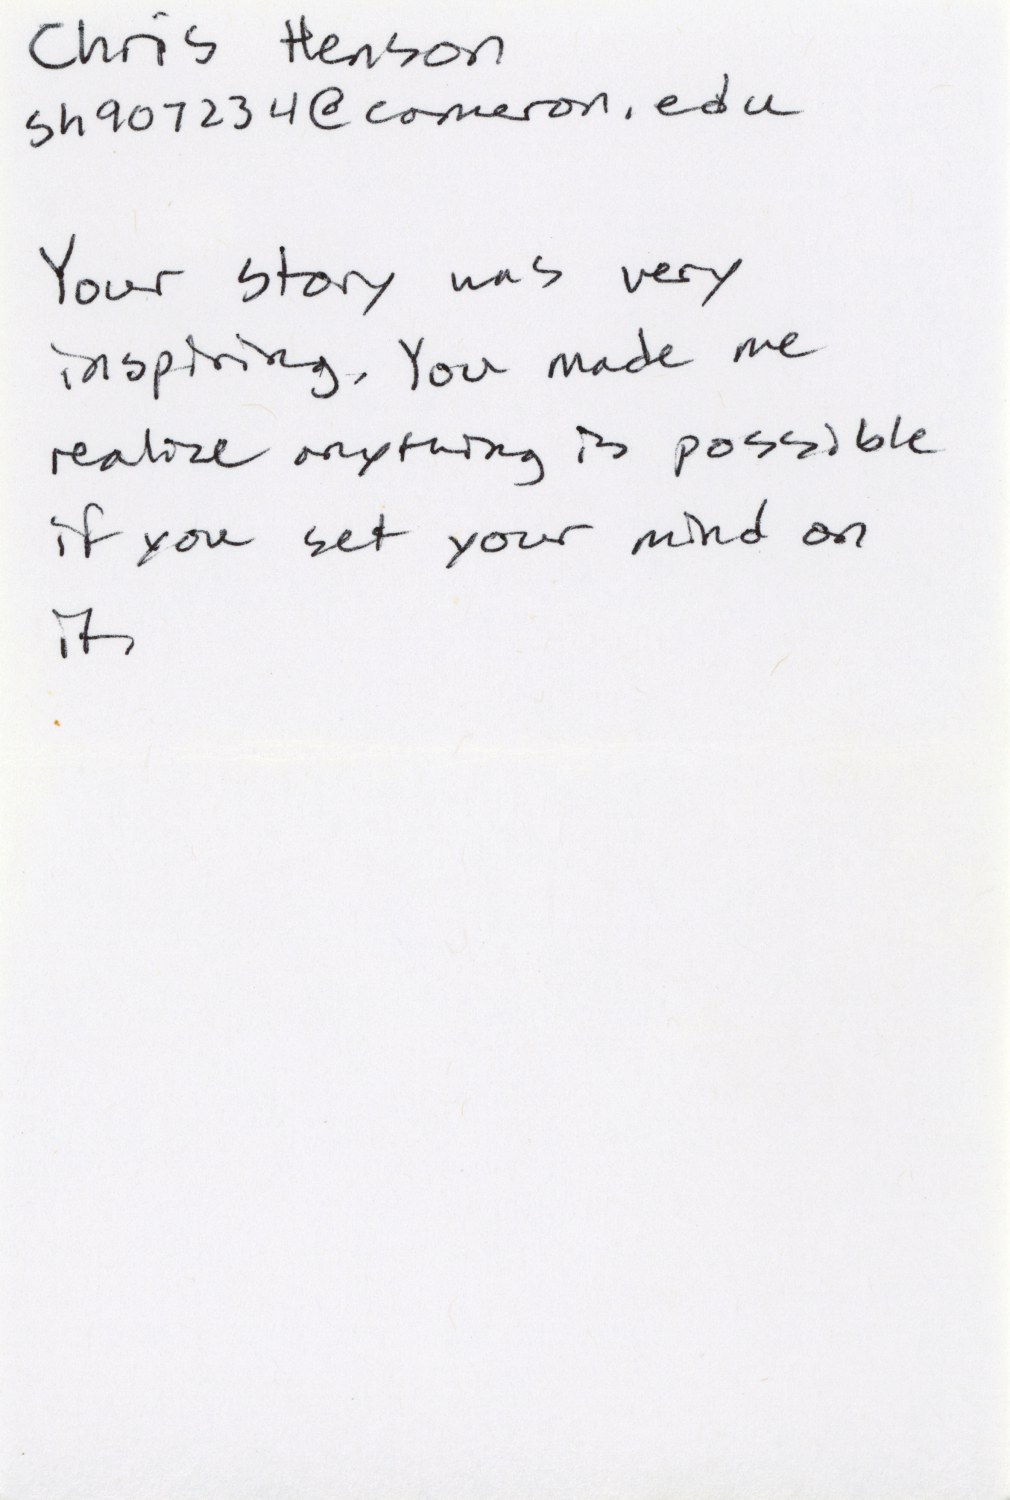 Chris Henson
sh907234@cameron.edu
Your story was very
inspiring. You made me
realize anything is possible
if you set your mind on
it.